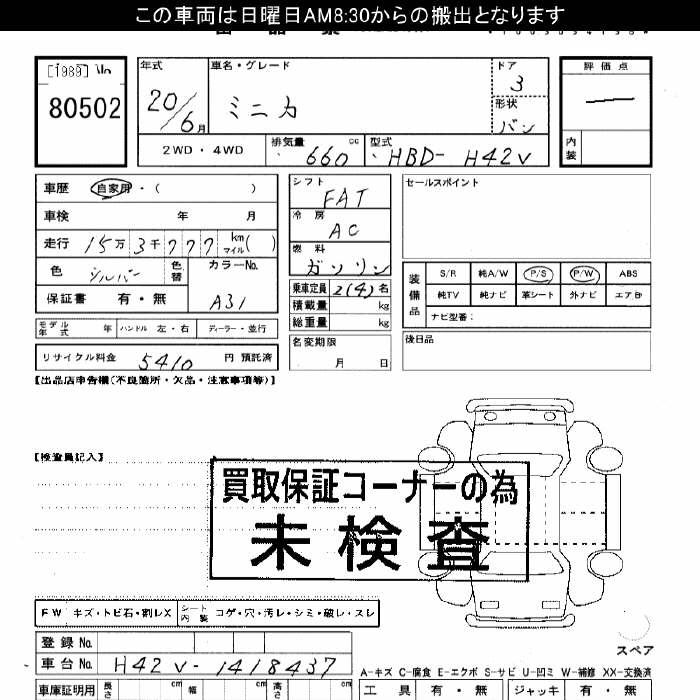 この車両は日曜日AM8:30からの搬出となります
[1989] No
80502
年式 20/6月
車名・グレード ミニカ
ドア 3
形状 バン
評価点 —
内装
2WD・4WD
排気量 660 cc
型式 HBD- H42V
車歴 自家用・( )
車検 年 月
走行 15万3千777 km マイル( )
色 シルバー 色替 カラーNo. A31
保証書 有・無
モデル年式 年 ハンドル 左・右 ディーラー・並行
リサイクル料金 5410 円 預託済
シフト FAT
冷房 AC
燃料 ガソリン
乗車定員 2(4)名
積載量 kg
総重量 kg
名変期限
月 日
セールスポイント
装備品
S/R 純A/W P/S P/W ABS
純TV 純ナビ 革シート 外ナビ エアB
ナビ型番:
後日品
【出品店申告欄(不良箇所・欠品・注意事項等)】
【検査員記入】
買取保証コーナーの為
未検査
FW キズ・トビ石・割レX シート内装 コゲ・穴・汚レ・シミ・破レ・スレ
登録No.
車台No. H42V-1418437
スペア
A-キズ C-腐食 E-エクボ S-サビ U-凹ミ W-補修 XX-交換済
車庫証明用 長さ cm 幅 cm 高さ cm
工具 有・無 ジャッキ 有・無